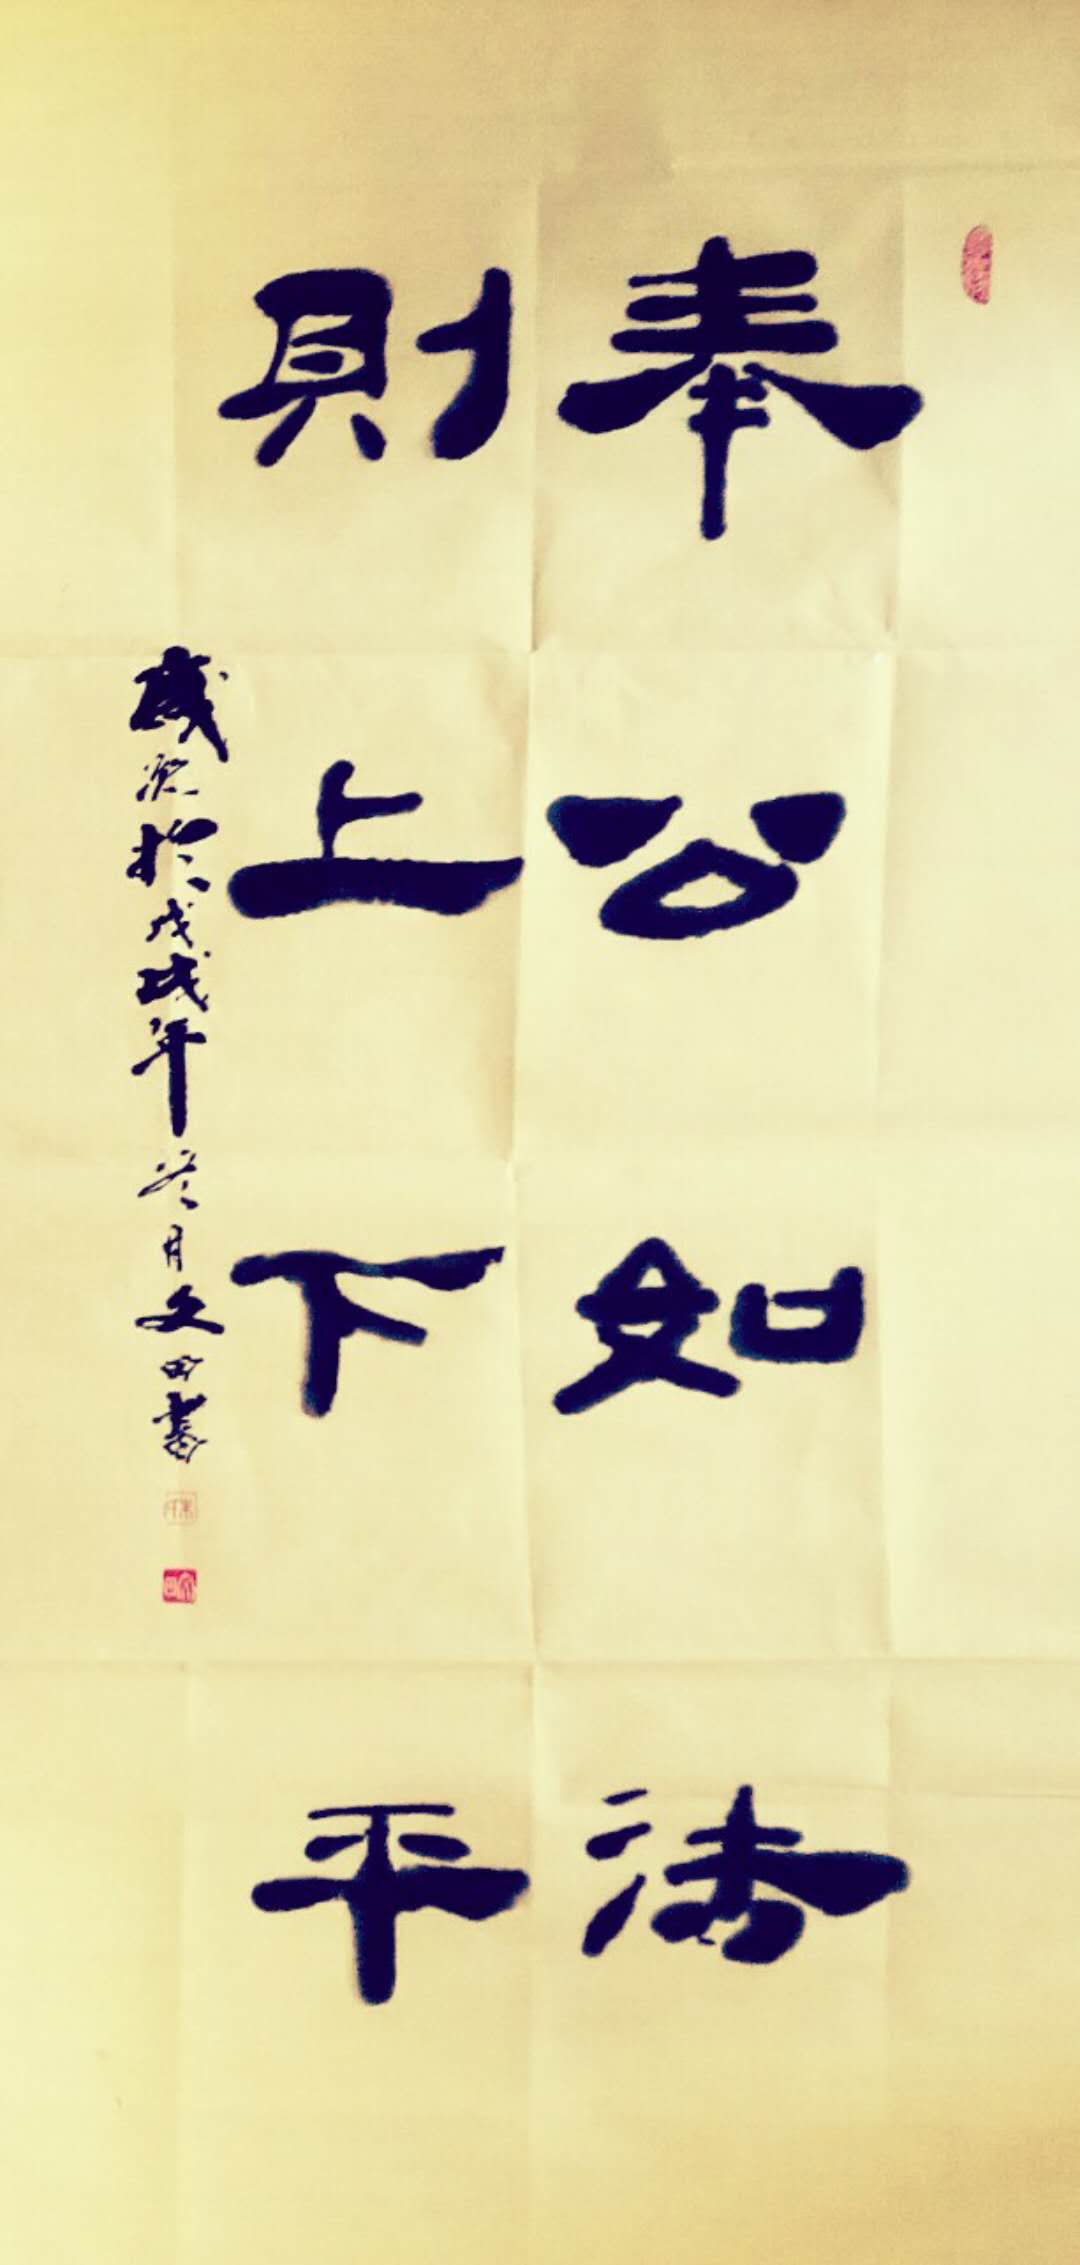 奉公如法
則上下平
歲次於戊戌年冬月文田書